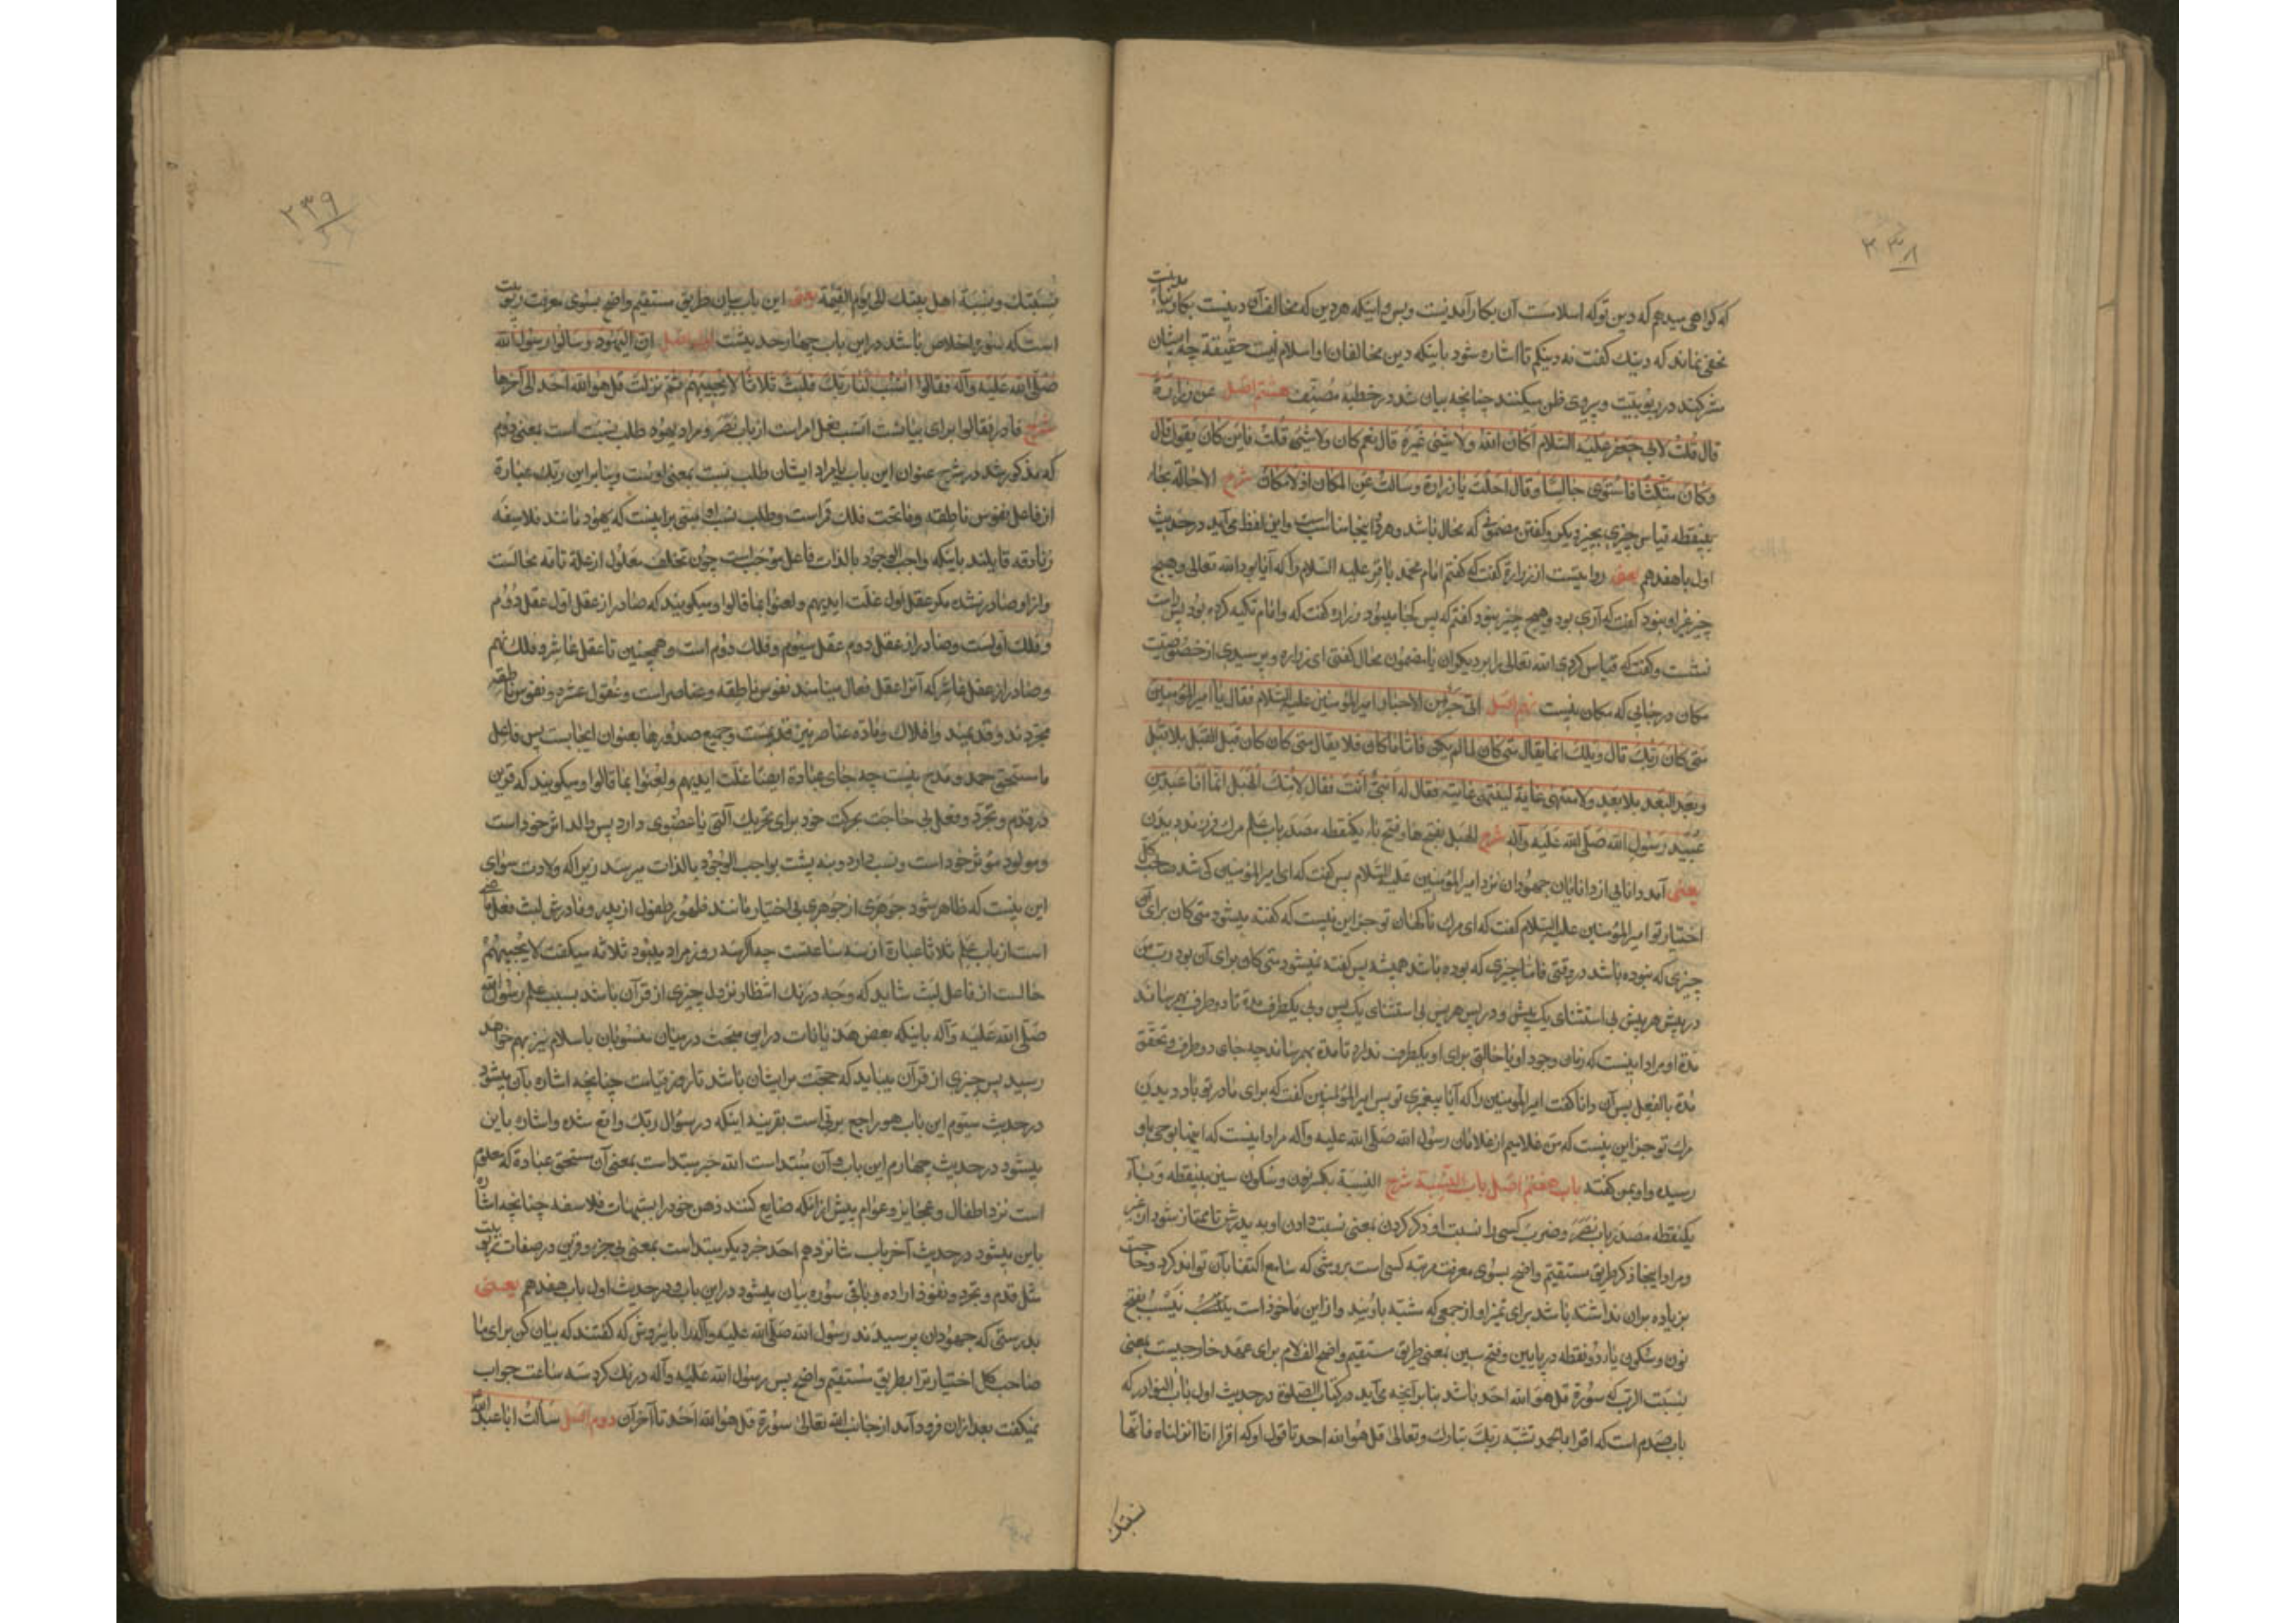 ۲۳۸
که گواهی میدهم که دین توکه اسلامست آن بکارآمدنیست وبس واینکه هردین که مخالف آن دینیست بکار نیامدنیست
مخفی نماند که دینک گفت نه دینکم تا اشاره شود باینکه دین مخالفان او اسلام نیست حقیقة چه ایشان
شرکند در ربوبیت وپیروی ظن میکنند چنانچه بیان شد در خطبه مصنف هشتم اصل عن زرارة
قال قلت لابی جعفر علیه السلام أکان الله ولا شیئ غیره قال نعم کان ولا شیئ قلت فاین کان یکون قال
وکان متکئا فاستوی جالسا وقال احلت یا زرارة وسالت عن المکان اذ لا مکان شرح الاحالة بحاء
بینقطه قیاس چیزی بچیز دیکر وگفتن مضمونی که محال باشد وهر دو اینجا مناسبست واین لفظ می آید در حدیث
اول باب هفدهم یعنی روایتست از زرارة گفت که گفتم امام محمد باقر علیه السلام را که آیا بود الله تعالی وهیچ
چیز غیر او نبود گفت که آری بود وهیچ چیز نبود گفتم که پس کجا میبود زراره گفت که وامام تکیه کرده بود پس راست
نشست وگفت که قیاس کردی الله تعالی را بر دیکران یا مضمون محال گفتی ای زراره وپرسیدی از خصوصیت
مکان در جایی که مکان نیست نهم اصل اتی حبر من الاحبار امیر المؤمنین علیه السلام فقال یا امیر المؤمنین
متی کان ربک قال ویلک انما یقال متی کان لما لم یکن فاما ما کان فلا یقال متی کان کان قبل القبل بلا قبل
وبعد البعد بلا بعد ولا منتهی غایة لینتهی غایته فقال له أنبی انت فقال لامک الهبل انما انا عبد من
عبید رسول الله صلی الله علیه وآله شرح الهبل بفتح هاء وفتح باء یکنقطه مصدر باب علم مرك فرزند دیدن
یعنی آمد دانایی از دانایان جهودان نزد امیر المؤمنین علیه السلام پس گفت که ای امیر المؤمنین کی شد صاحب کل
اختیار تو امیر المؤمنین علیه السلام گفت که ای مرك ناکهان تو جز این نیست که گفته میشود متی کان برای
چیزی که نبوده باشد در وقتی فاما چیزی که بوده باشد همیشه پس گفته نمیشود متی کان برای آن بود رب من
در پیش هر پیش بی استثنای یک پیش ودر پس هر پس بی استثنای یک پس وبی یکطرف مدة تا دو طرف بهم رساند
مدة او مراد اینست که زمان وجود او یا حالتی برای او یکطرف ندارد تا مدة بهم رساند چه جای دو طرف وتحقق
مدة بالفعل پس آن دانا گفت امیر المؤمنین را که آیا پیغمبری تو پس امیر المؤمنین گفت که برای مادر تو باد دیدن
مرك تو جز این نیست که من غلامیم از غلامان رسول الله صلی الله علیه وآله مراد اینست که اینها بوحی باو
رسیده واو بمن گفته باب هفتم اصل باب النسبة شرح النسبة بکسر نون وسکون سین بینقطه وباء
یکنقطه مصدر باب نصر وضرب کسی را نسبت او ذکر کردن بمعنی نسبت دادن او به پدرش تا ممتاز شود از غیر
ومراد اینجا ذکر طریق مستقیم واضح بسوی معرفت مرتبه کسی است بروشی که سامع اکتفا بآن تواند کرد وحاجت
بزیاده بران نداشته باشد برای تمیز او از جمعی که مشتبه باویند واز این ماخوذ است نیسب بفتح
نون وسکون یاء دو نقطه در پایین وفتح سین بمعنی طریق مستقیم واضح الف لام برای عهد خارجیست بمعنی
نسبت الرب که سورة قل هو الله احد باشد بنابر آنچه می آید در کتاب الصلوة در حدیث اول باب النوادر که
باب صدم است که اقرا یا محمد نسبة ربک تبارک وتعالی قل هو الله احد تا قول او که اقرا انا انزلناه فانها
نسبتک
۲۳۹
نسبتک ونسبة اهل بیتک الی یوم القیمة یعنی این باب بیان طریق مستقیم واضح بسوی معرفت ربوبیت
است که سورة اخلاص باشد در این باب چهار حدیثست اول اصل ان الیهود سالوا رسول الله
صلی الله علیه وآله فقالوا انسب لنا ربک فلبث ثلاثا لا یجیبهم ثم نزلت قل هو الله احد الی آخرها
شرح فاء در فقالوا برای بیانست انسب فعل امر است از باب نصر ومراد یهود طلب نسبت است بمعنی دوم
که مذکور شد در شرح عنوان این باب یا مراد ایشان طلب نسبت بمعنی اولست وبنابر این ربک عبارة
از فاعل نفوس ناطقه وماتحت فلک قمر است وطلب نسب او مبنی بر اینست که یهود مانند فلاسفه
زنادقه قایلند باینکه واجب الوجود بالذات فاعل موجب است چون تخلف معلول از علة تامه محالست
واز او صادر نشده مکر عقل اول غلت ایدیهم ولعنوا بما قالوا ومیگویند که صادر از عقل اول عقل دوم
وفلک اولست وصادر از عقل دوم عقل سیوم وفلک دوم است وهمچنین تا عقل عاشر وفلک نهم
وصادر از عقل عاشر که آنرا عقل فعال مینامند نفوس ناطقه وعناصر است وعقول عشره ونفوس ناطقه
مجردند وقدیمند وافلاک وماده عناصر نیز قدیمست وجمیع صدورها بعنوان ایجابست پس فاعل
ما مستحق حمد ومدح نیست چه جای عبادة ایضا غلت ایدیهم ولعنوا بما قالوا ومیگویند که قرین
در قدم وتجرد وفعل بی حاجت بحرکت خود برای تحریک آلتی یا عضوی دارد پس والد اثر خود است
ومولود مؤثر خود است ونسب دارد وبده پشت بواجب الوجود بالذات میرسد زیرا که ولادت سوای
این نیست که ظاهر شود جوهری از جوهری بی اختیار مانند ظهور طفل از پدر ومادرش لبث فعل ماضی
است از باب علم ثلاثا عبارة از سه ساعتست چه اگر سه روز مراد میبود ثلاثه میگفت لا یجیبهم
حالست از فاعل لبث شاید که وجه درنک انتظار نزول چیزی از قرآن باشد بسبب علم رسول الله
صلی الله علیه وآله باینکه بعض هذیانات در این مبحث در میان منسوبان باسلام نیز بهم خواهد
رسید پس چیزی از قرآن میباید که حجت بر ایشان باشد تا روز قیامت چنانچه اشاره بآن میشود
در حدیث سیوم این باب هو راجع برب است بقرینه اینکه در سؤال ربک واقع شده واشاره باین
میشود در حدیث چهارم این باب وآن مبتداست الله خبر مبتداست بمعنی آن مستحق عبادة که معلوم
است نزد اطفال وعجایز وعوام پیش از انکه ضایع کنند ذهن خود را بشبهات فلاسفه چنانچه اشاره
باین میشود در حدیث آخر باب شانزدهم احد خبر دیکر مبتداست بمعنی بی جزء وقرین در صفات ربوبیت
مثل قدم وتجرد ونفوذ اراده وباقی سوره بیان میشود در این باب ودر حدیث اول باب هفدهم یعنی
بدرستی که جهودان پرسیدند رسول الله صلی الله علیه وآله را باین روش که گفتند که بیان کن برای ما
صاحب کل اختیار ترا بطریق مستقیم واضح پس رسول الله علیه وآله درنک کرد سه ساعت جواب
نمیگفت بعد ازان فرود آمد از جانب الله تعالی سورة قل هو الله احد تا آخر آن دوم اصل سألت ابا عبد الله